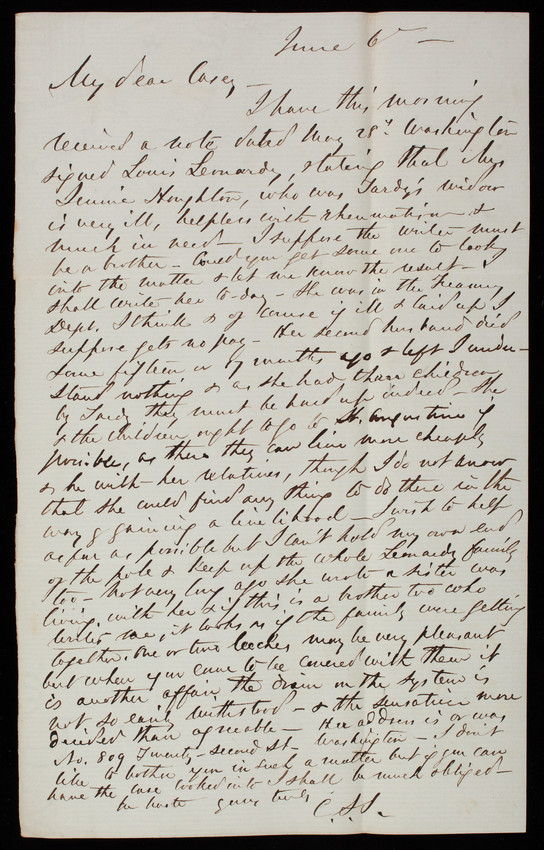 June 6th —
My dear Casey —
I have this morning
received a note dated May 28th Washington
signed Louis Leonardy, stating that Mrs
Jennie Houghton, who was Tardy's widow
is very ill, helpless with rheumatism — &
much in need — I suppose the writer must
be a brother — Could you get some one to look
into the matter & let me know the result — I
shall write her to-day — She was in the Treasury
Dept. I think & of course if ill & laid up I
suppose gets no pay — Her second husband died
some fifteen or 17 months ago & left I under-
stand nothing & as she had three children
by Tardy they must be hard up indeed — She
& the children ought to go to St. Augustine if
possible, as there they can live more cheaply
& be with her relatives, though I do not know
that she could find any thing to do there in the
way of gaining a livelihood — I wish to help
as far as possible but I can't hold my own end
of the pole & keep up the whole Leonardy family
too — Not very long ago she wrote a sister was
living with her & if this is a brother too who
writes me, it looks as if the family were getting
together. One or two leeches may be very pleasant
but when you come to be covered with them it
is another affair, the drain on the system is
not so easily withstood — & the sensation more
decided than agreeable — Her address is or was
No. 809 Twenty-second St. Washington — I don't
like to bother you in such a matter but if you can
have the case looked into I shall be much obliged —
In haste yours truly